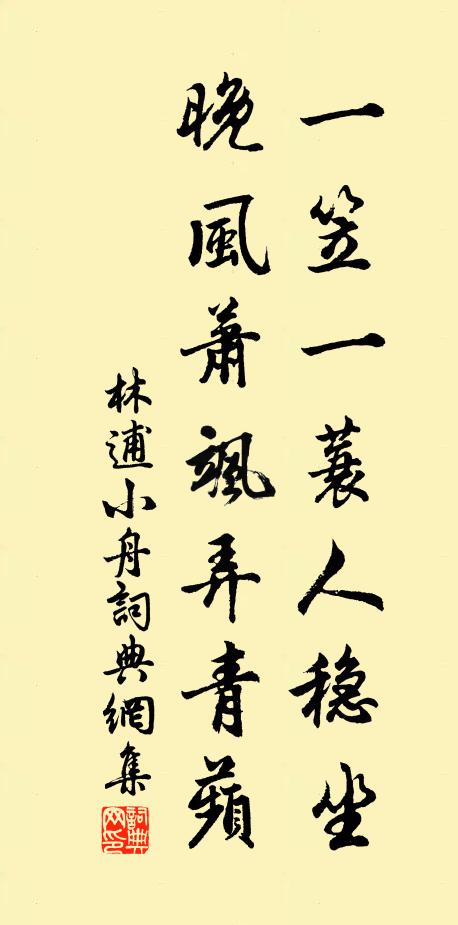 一笠一蓑人稳坐
晚風蕭颯弄青蘋
林逋小舟詞典網集
詞典
网印